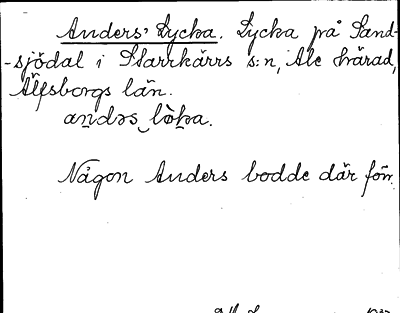 Anders' Lycka. Lycka på Sand-
-sjödal i Starrkärrs s:n, Ale härad,
Älfsborgs län.
andəs lòka.
Någon Anders bodde där förr.